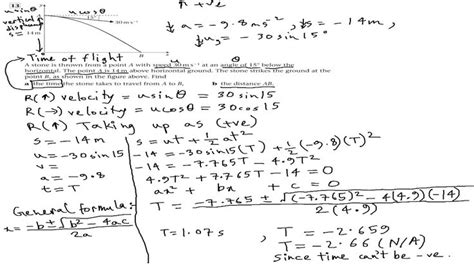 13
usinθ
vertical
displ
s = 14m
A
ucosθ
15°
30 m s⁻¹
B
R +ve
↓ a = -9.8 ms⁻², ↓s = -14 m,
↓u = -30 sin 15°
Time of flight
u
θ
A stone is thrown from a point A with speed 30 m s⁻¹ at an angle of 15° below the
horizontal. The point A is 14 m above horizontal ground. The stone strikes the ground at the
point B, as shown in the figure above. Find
a the time the stone takes to travel from A to B,
b the distance AB.
R(↑) velocity = usinθ = 30 sin15
R(→) velocity = ucosθ = 30 cos15
R(↑) Taking up as (+ve)
s = -14 m
u = -30 sin 15
v =
a = -9.8
t = T
General formula:-
x = -b ± √b² - 4ac / 2a
s = ut + 1/2 at²
-14 = -30 sin15 (T) + 1/2 (-9.8)(T)²
-14 = -7.765T - 4.9T²
4.9T² + 7.765T - 14 = 0
ax² + bx + c = 0
T = -7.765 ± √(-7.765)² - 4(4.9)(-14) / 2(4.9)
T = 1.07 s,
T = -2.659
T = -2.66 (N/A)
since time can't be -ve.